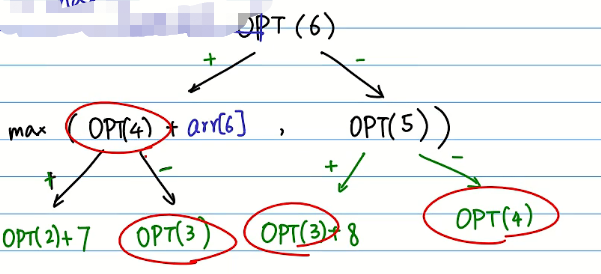 OPT(6)
+ -
max (OPT(4) + arr[6] , OPT(5))
+ - + -
OPT(2)+7 OPT(3) OPT(3)+8 OPT(4)